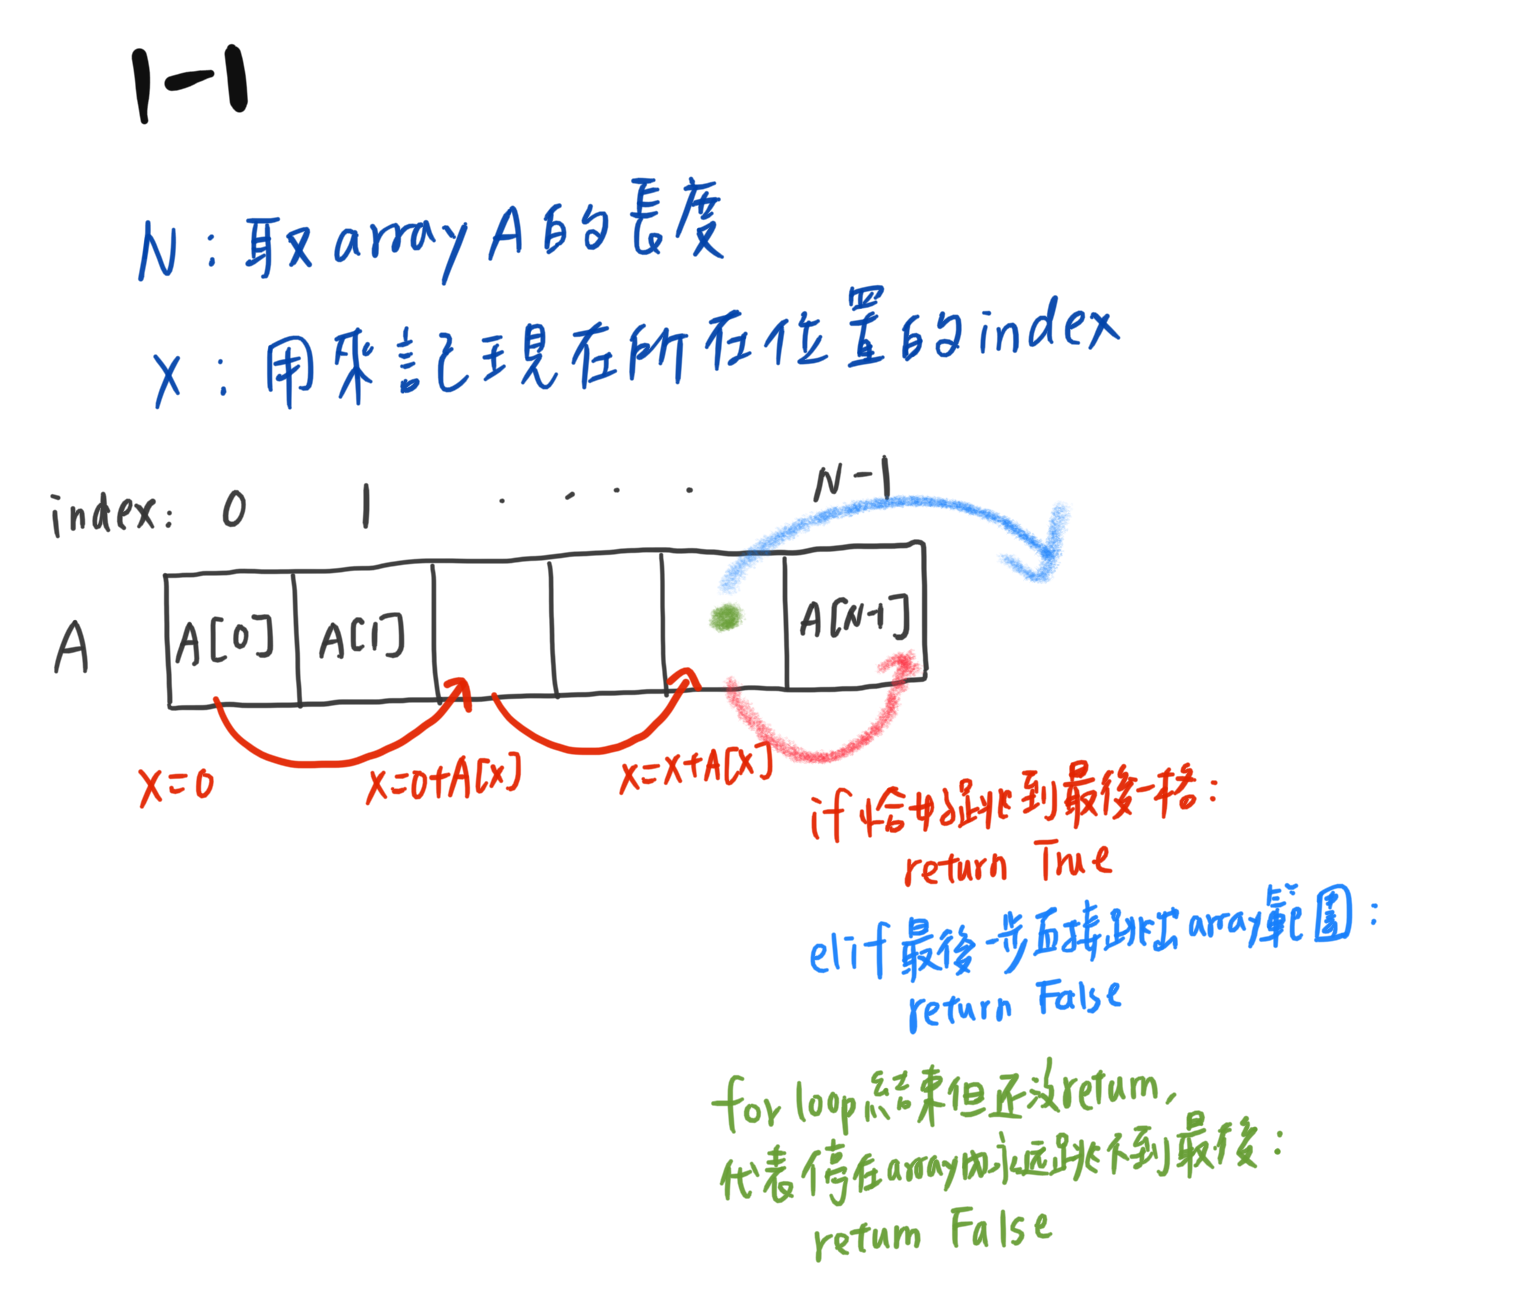 1-1
N：取array A的長度
X：用來記現在所在位置的index
index: 0 1 . . . . N-1
A A[0] A[1] A[N-1]
X=0 X=0+A[X] X=X+A[X]
if 恰好跳到最後一格:
return True
elif 最後一步直接跳出array範圍:
return False
for loop結束但还没return,
代表停在array內永远跳不到最後:
return False